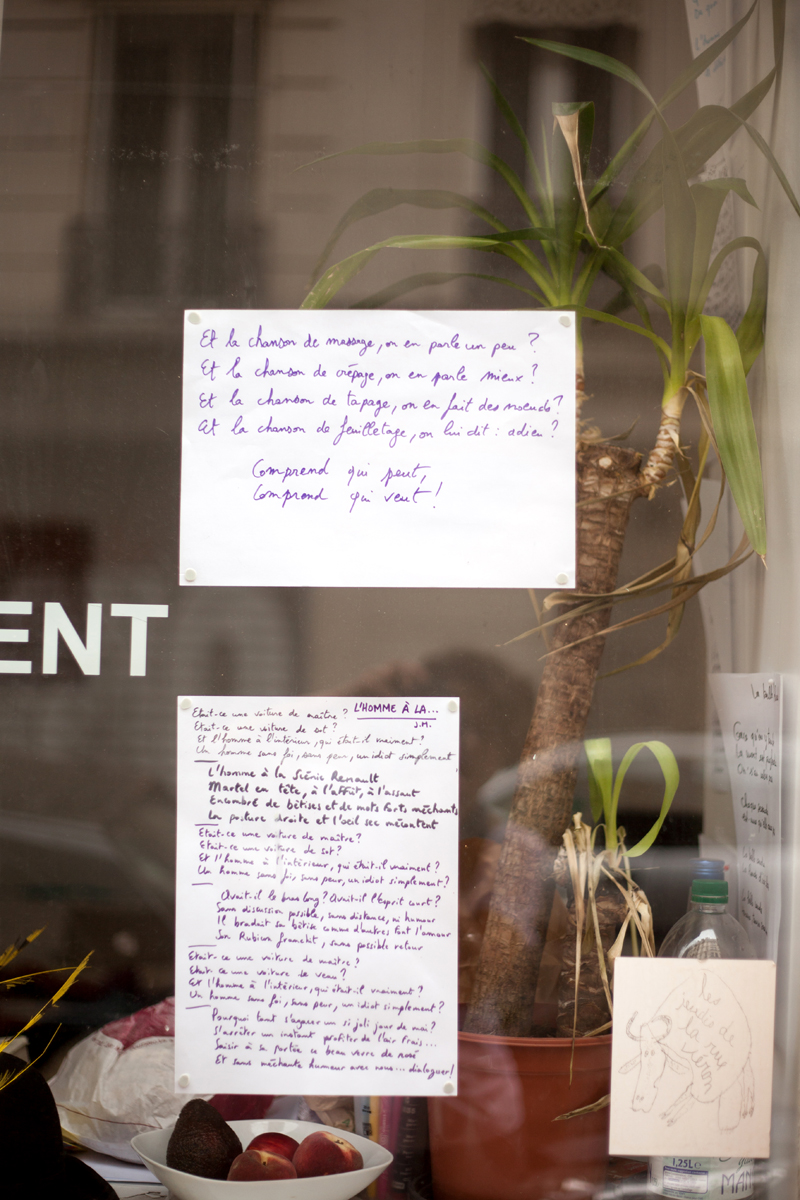 Et la chanson de massage, on en parle un peu ?
Et la chanson de crêpage, on en parle mieux ?
Et la chanson de tapage, on en fait des nœuds ?
Et la chanson de feuilletage, on lui dit : adieu ?
Comprend qui peut,
Comprend qui veut !
ENT
L'HOMME À LA...
J.M.
Etait-ce une voiture de maître ?
Etait-ce une voiture de sot ?
Et l'homme à l'intérieur, qui était-il vraiment ?
Un homme sans foi, sans peur, un idiot simplement
L'homme à la Scénic Renault
Martel en tête, à l'affût, à l'assaut
Encombré de bêtises et de mots forts méchants
La posture droite et l'oeil sec mécontent
Etait-ce une voiture de maître ?
Etait-ce une voiture de sot ?
Et l'homme à l'intérieur, qui était-il vraiment ?
Un homme sans foi sans peur, un idiot simplement ?
Avait-il le bras long ? Avait-il l'esprit court ?
Sans discussion possible, sans distance, ni humour
Il brandait sa bêtise comme d'autres font l'amour
Son Rubicon franchit, sans possible retour
Etait-ce une voiture de maître ?
Etait-ce une voiture de veau ?
Et l'homme à l'intérieur, qui était-il vraiment ?
Un homme sans foi, sans peur, un idiot simplement ?
Pourquoi tant s'agacer un si joli jour de mai ?
S'arrêter un instant profiter de l'air frais...
Saisir à sa portée ce beau verre de rosé
Et sans méchante humeur avec nous... dialoguer !
Les
jeudis
la rue
1,25L
MAN